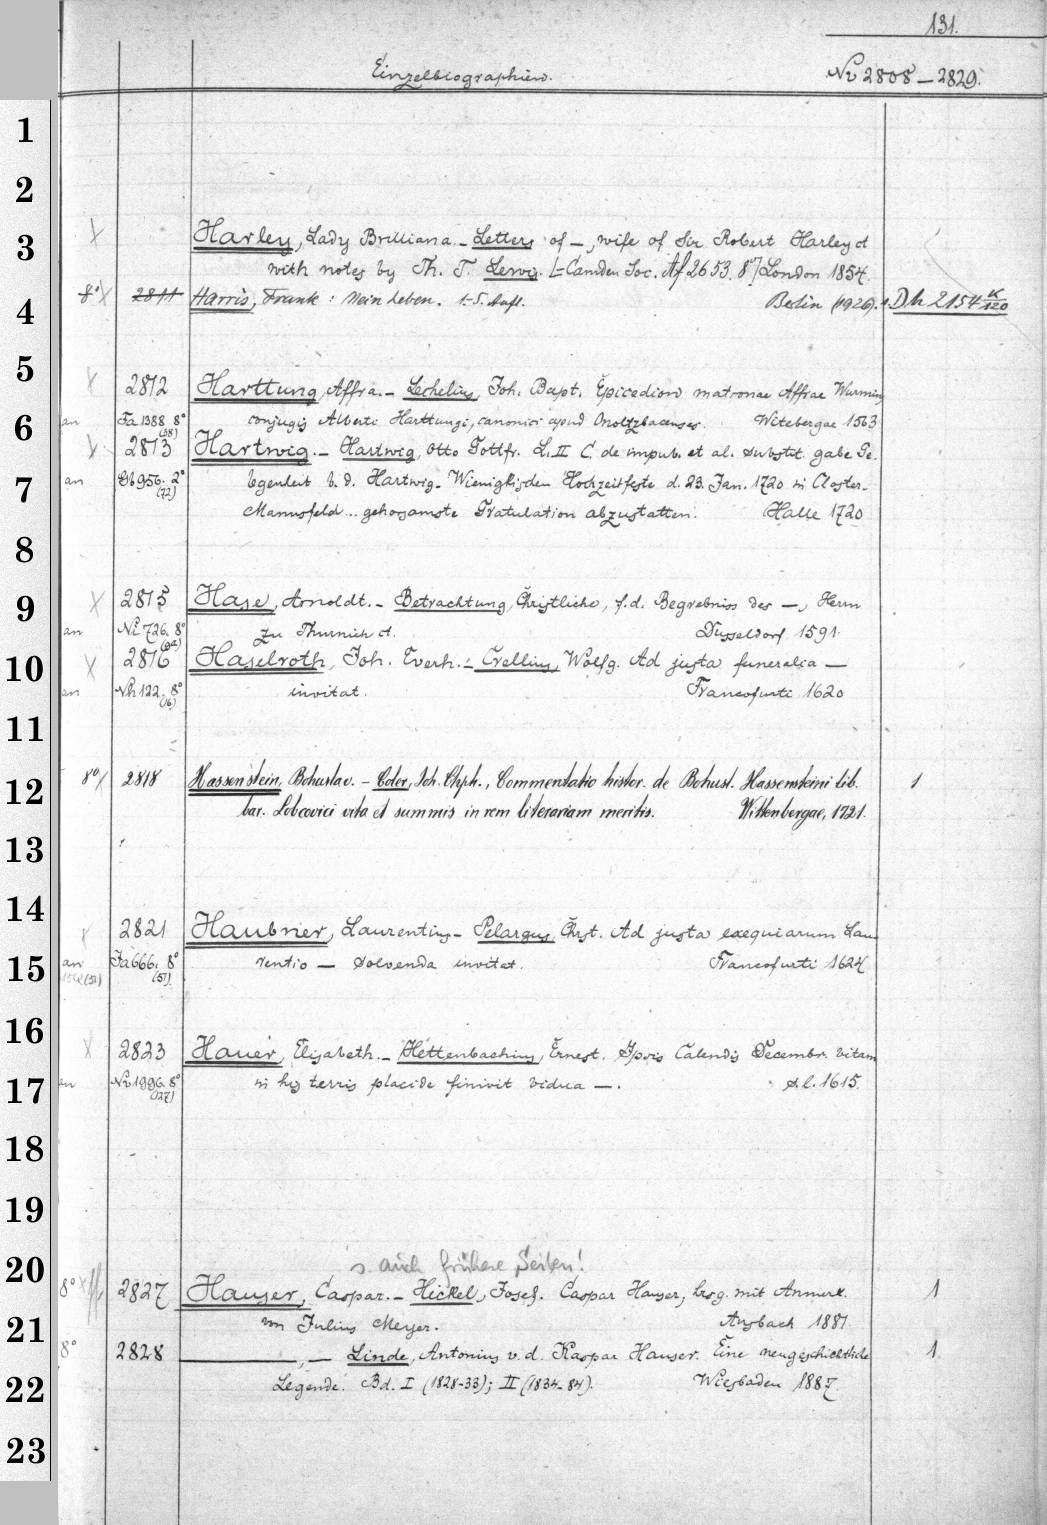 131.
Einzelbiographien. Nv 2808 – 2829.
1
2
3 Harley, Lady Brilliana. – Letters of –, wife of Sir Robert Harley ct
with notes by Th. T. Lewis. [= Camden Soc. Af 2653. 8°] London 1854.
4 8° 2811 Harris, Frank: Mein Leben. 1.-5. Aufl. Berlin (1926). Dh 2154 K/120
5 2812 Harttung, Affra. – Lechelius, Joh. Bapt. Epicedion matronae Affrae Wurmin
6 an Fa 1388 8° (38) conjugis Alberti Harttungi, canonici apud Onoltzbacenses. Witebergae 1563
2813 Hartwig. – Hartwig, Otto Gottfr. L. II C. de impub. et al. substit. gabe Ge-
7 an Gb 956. 2° (72) legenheit b. d. Hartwig- Hochzeitfeste d. 23. Jan. 1720 in Closter-
Mannsfeld... gehorsamste Gratulation abzustatten. Halle 1720
8
9 2815 Hase, Arnoldt. – Betrachtung, Christliche, f. d. Begrebniss des –, Herrn
an Ni 726. 8° zu Thurnich ct. Düsseldorf 1591.
10 2816 Haselroth, Joh. Everh. – Crellius, Wolfg. Ad justa funeralia –
an Nh 122. 8° (16) invitat. Francofurti 1620
11
12 8° 2818 Hassenstein, Bohuslav. – Coler, Joh. Chph., Commentatio histor. de Bohusl. Hassensteini lib. 1
bar. Lobcovici vita et summis in rem literariam meritis. Wittenbergae, 1721.
13
14
2821 Haubner, Laurentius – Pelargus, Chrst. Ad justa exequiarum Lau-
15 an Fa 666. 8° (57) rentio – solvenda invitat. Francofurti 1624
16
2823 Hauer, Elisabeth. – Hettenbachius, Ernest. Ipsis Calendis Decembr. vitam
17 an Nv 1996. 8° (27) in his terris placide finivit vidua –. s. l. 1615.
18
19
20 s. auch frühere Seiten!
8° 2827 Hauser, Caspar. – Hickel, Josef. Caspar Hauser, hrsg. mit Anmerk. 1
21 von Julius Meyer. Ansbach 1881.
8° 2828 –, – Linde, Antonius v. d. Kaspar Hauser. Eine neugeschichtliche 1
22 Legende. Bd. I (1828-33); II (1834-84). Wiesbaden 1887.
23